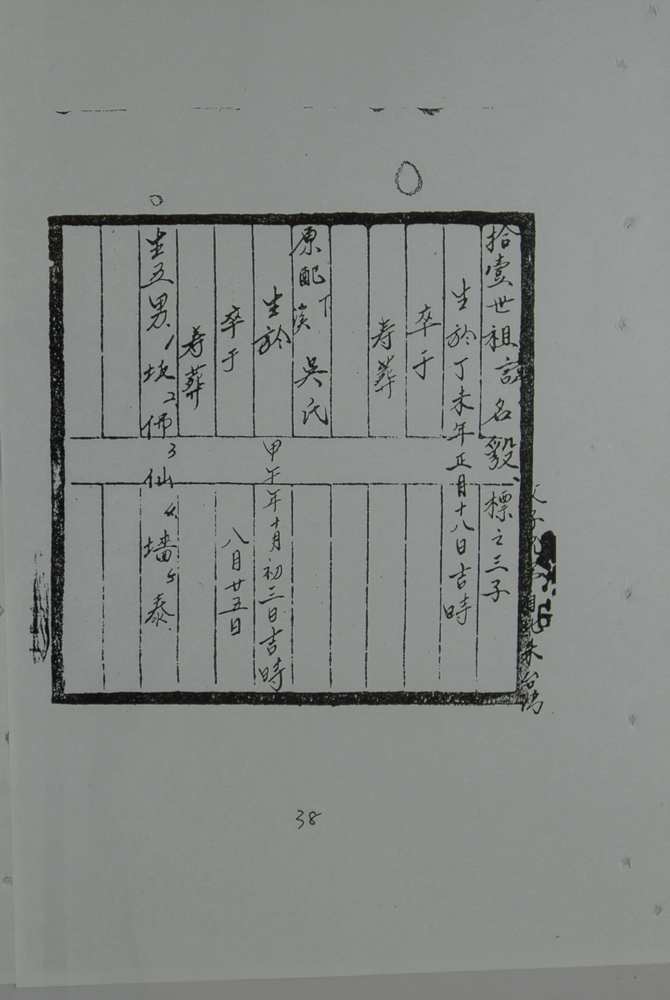 拾壹世祖諱名毅、標之三子
生於丁未年正月十八日吉時
卒于
寿葬
原配下溪吳氏
生於甲午年十月初三日吉時
卒于八月廿五日
寿葬
生五男、1坡2佛3仙4墙5泰
38